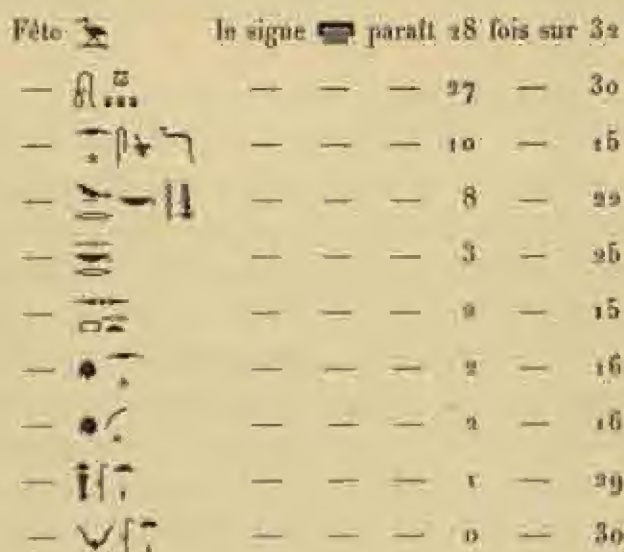 Fête le signe paraît 28 fois sur 32
— — — — 27 — 30
— — — — 10 — 15
— — — — 8 — 22
— — — — 3 — 25
— — — — 2 — 15
— — — — 2 — 16
— — — — 2 — 16
— — — — 1 — 29
— — — — 0 — 30